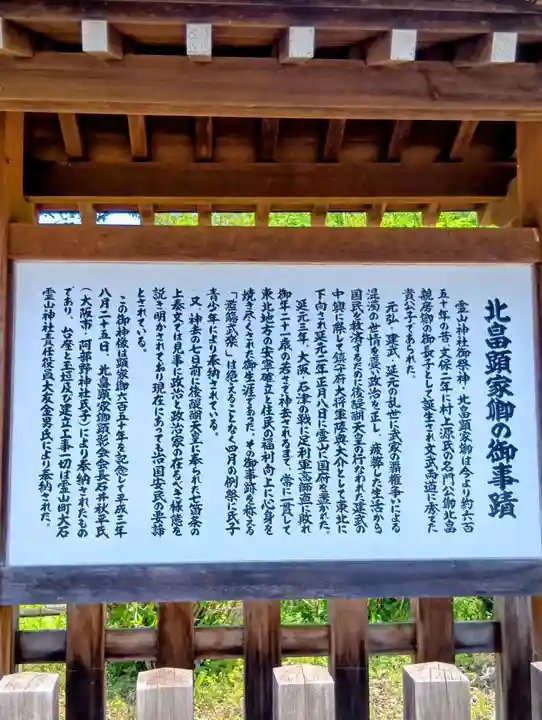 北畠顕家卿の御事蹟
霊山神社御祭神、北畠顕家卿は今より約六百
五十年の昔、文保二年に村上源氏の名門公卿北畠
親房卿の御長子として誕生され文武両道に秀でた
貴公子であられた。
元弘・建武、延元の乱世に武家の覇権争いによる
混濁の世情を憂い政治を正し、疲弊した生活から
国民を救済するために後醍醐天皇の行なわれた建武の
中興に際して鎮守府大将軍陸奥大介として東北に
下向され延元二年正月八日に霊山に国府を置かれた。
延元三年、大阪・石津の戦に足利軍高師直に敗れ
御年二十一歳の若さで神去されるまで、常に一貫して
東北地方の安寧確立と住民の福利向上に心身を
焼き尽くされた御生涯であった。その御事跡を称える
「濫觴武楽」は絶えることなく四月の例祭に氏子
青少年により奉納されている。
又、神去の七日前に後醍醐天皇に奉られた七箇条の
上奏文では見事に政治と政治家の在るべき様態を
説き明かされており現在にあっても治国安民の要諦
とされている。
この御神像は顕家卿六百五十年を記念して平成三年
八月二十五日、北畠顕家卿顕彰会会長石井秋平氏
(大阪市・阿部野神社氏子)により奉納されたもの
であり、台座と玉垣及び建立工事一切は霊山町大石
霊山神社責任役員大友金男氏により奉納された。